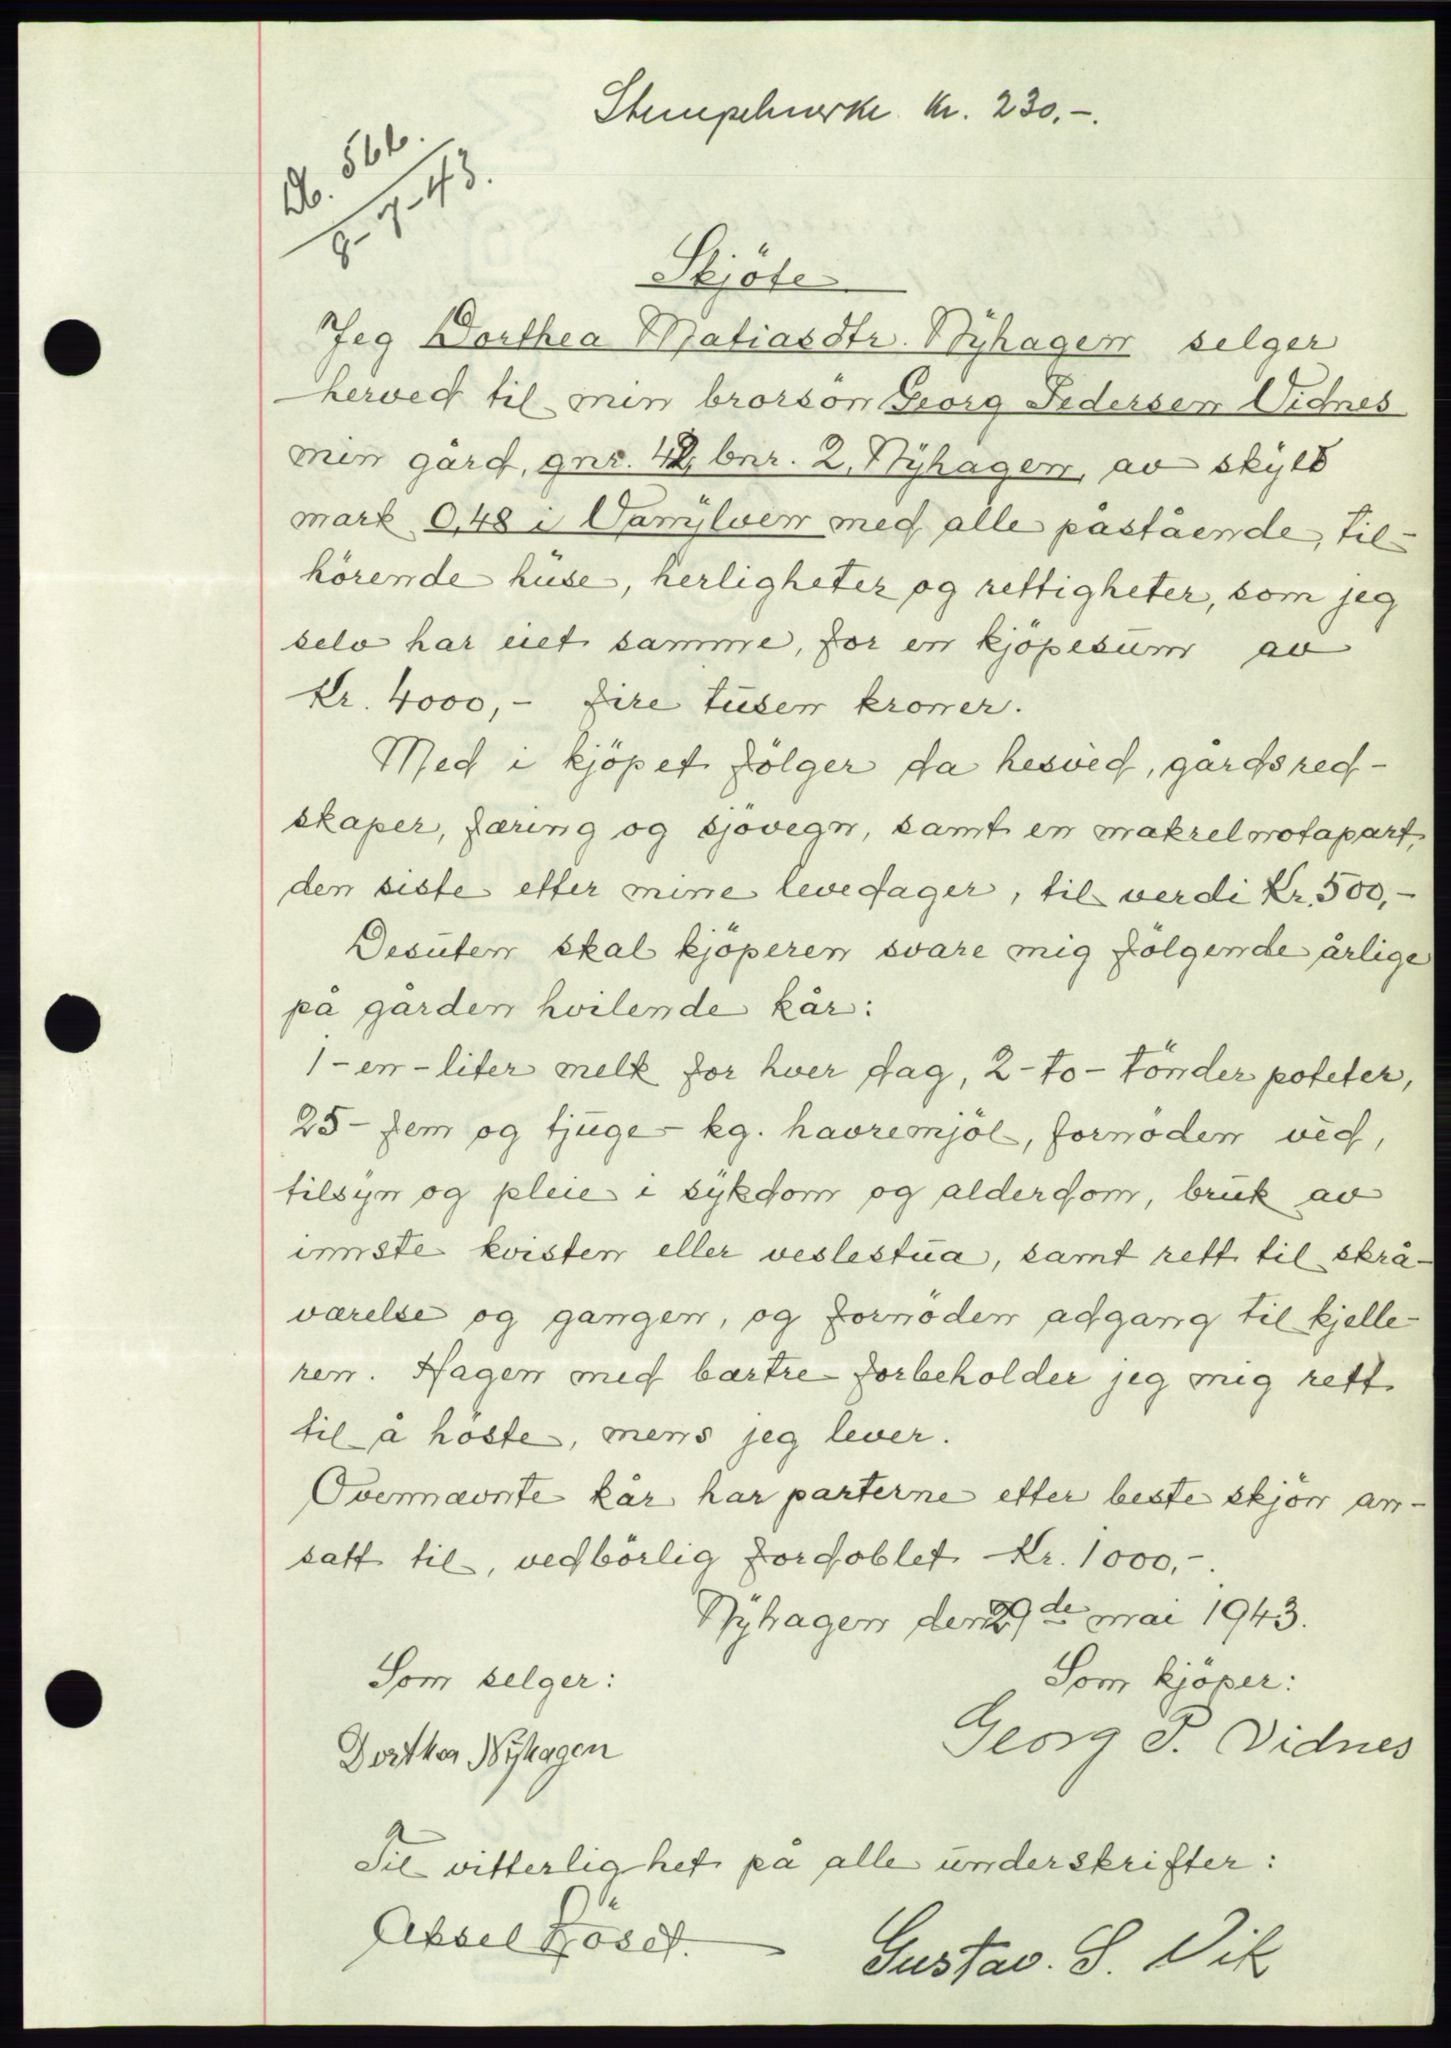 Stempelmerke kr. 230.-.
Db. 566.
8-7-43.
Skjöte
Jeg Dorthea Matiasdtr. Nyhagen selger
herved til min brorsön Georg Pedersen Vidnes
min gård, gnr. 42, bnr. 2, Nyhagen, av skyld
mark 0,48 i Vanylven med alle påstående, til-
hörende huse, herligheter og rettigheter, som jeg
selv har eiet samme, for en kjöpesum av
Kr. 4000,- fire tusen kroner.
Med i kjöpet fölger da hesved, gårdsred-
skaper, færing og sjövegn, samt en makrelnotapart,
den siste efter mine levedager, til verdi Kr. 500,-
Desuten skal kjöperen svare mig fölgende årlige
på gården hvilende kår:
1-en-liter melk for hver dag, 2-to-tönder poteter,
25-fem og tjuge-kg. havremjöl, fornöden ved,
tilsyn og pleie i sykdom og alderdom, bruk av
innste kvisten eller veslestua, samt rett til skrå-
værelse og gangen, og fornöden adgang til kjelle-
ren. Hagen med bærtre forbeholder jeg mig rett
til å höste, mens jeg lever.
Ovennævnte kår har parterne efter beste skjön an-
satt til, vedbörlig fordoblet Kr. 1000,-.
Nyhagen den 29de mai 1943.
Som selger: Som kjöper:
Dorthea Nyhagen Georg P. Vidnes
Til vitterlighet på alle underskrifter:
Aksel Röset. Gustav. S. Vik